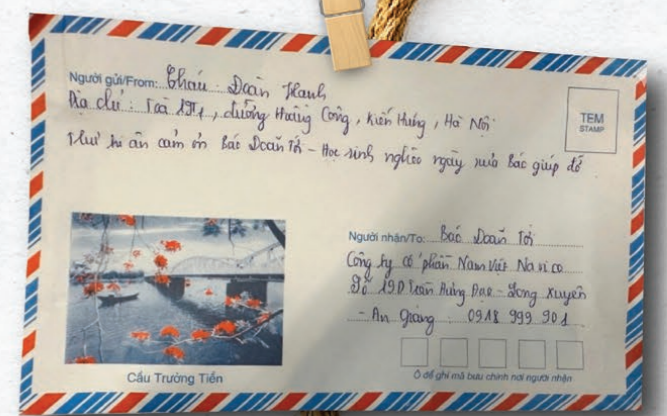 Người gửi/From: Cháu: Doãn Hạnh
Địa chỉ: Toà, đường Hoàng Công, Kiến Hưng, Hà Nội
Thư tri ân cảm ơn Bác Doãn Tới - Học sinh nghèo ngày xưa Bác giúp đỡ
TEM
STAMP
Người nhận/To: Bác Doãn Tới
Công ty cổ phần Nam Việt Navico
Số 19D Trần Hưng Đạo - Long Xuyên
- An Giang 0918 999 901
Cầu Trường Tiền
Ô để ghi mã bưu chính nơi người nhận